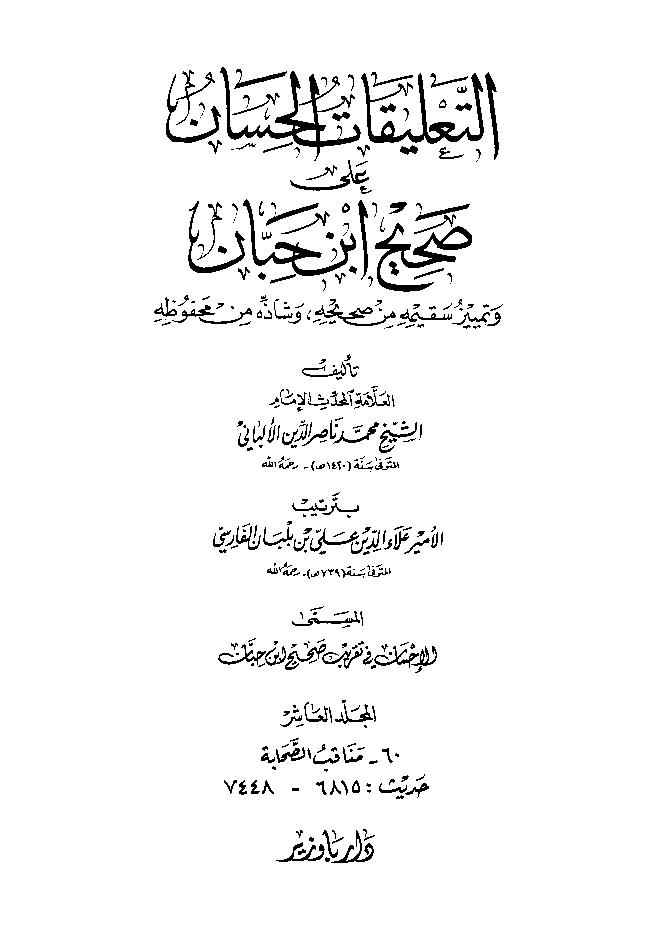 التَّعليقات الحِسَان
عَلى
صَحِيْح ابْن حِبَّان
وَتمييزُ سَقيمِهِ مِن صَحيحِهِ، وَشاذِّه مِنْ محفُوظِهِ
تأليف
العَلّامَة المحدّث الإمَام
الشيخ محمَّد نَاصر الدِّين الألبَاني
المتوفى سَنَة (١٤٢٠ھ) - رحمَهُ الله
بترتيب
الأمير عَلَاء الدِّين عَليّ بن بَلْبَان الفَارسيّ
المتوفى سَنَة (٧٣٩ھ) - رحمَهُ الله
المسَمَّى
الإحْسَان في تقريب صَحيح ابن حِبَّان
المجَلّد العَاشِر
٦٠ - مَنَاقبُ الصَّحَابة
حَديث : ٦٨١٥ - ٧٤٤٨
دَار بَاوَزير